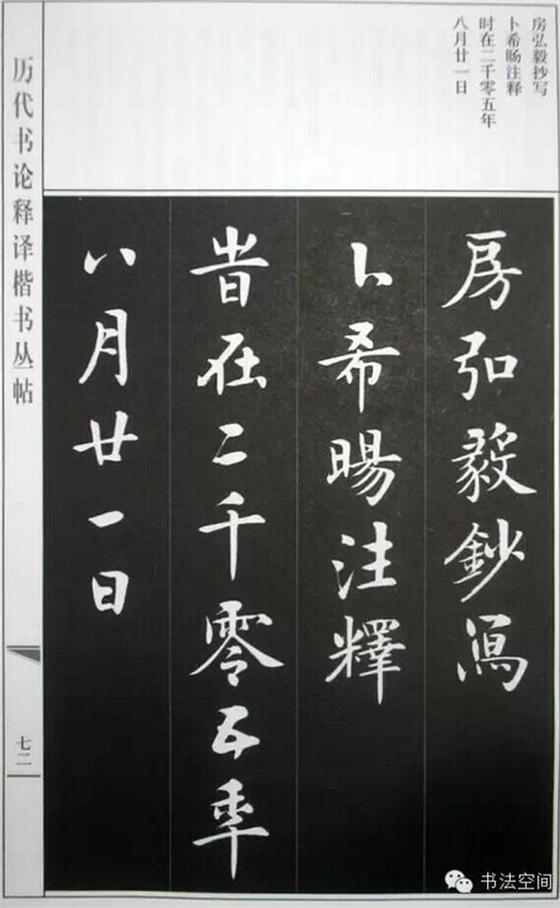 房弘毅抄写
卜希旸注释
时在二千零五年
八月廿一日
房弘毅鈔寫
卜希暘注釋
旹在二千零五年
八月廿一日
历代书论释译楷书丛帖
七二
书法空间